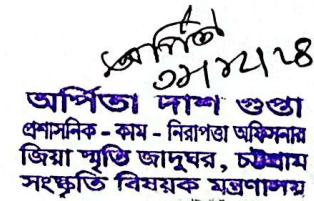 অর্পিতা
অর্পিতা দাশ গুপ্তা
প্রশাসনিক - কাম - নিরাপত্তা অফিসনার
জিয়া স্মৃতি জাদুঘর, চট্টগ্রাম
সংস্কৃতি বিষয়ক মন্ত্রণালয়